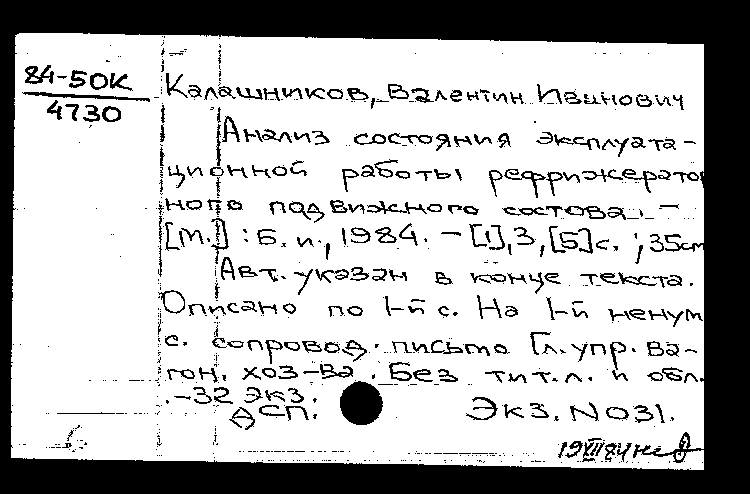 84-50К
4730
Калашников, Валентин Иванович
Анализ состояния эксплуата-
ционной работы рефрижератор
ного подвижного состава. –
[М.] : Б. и., 1984. – [1],3,[5]с. ; 35см
Авт. указан в конце текста.
Описано по 1-й с. На 1-й ненум
с. сопровод. письмо Гл. упр. ва-
гон. хоз-ва. Без тит. л. и обл.
.-32 экз.
ДСП. Экз. N031.
19VIII84